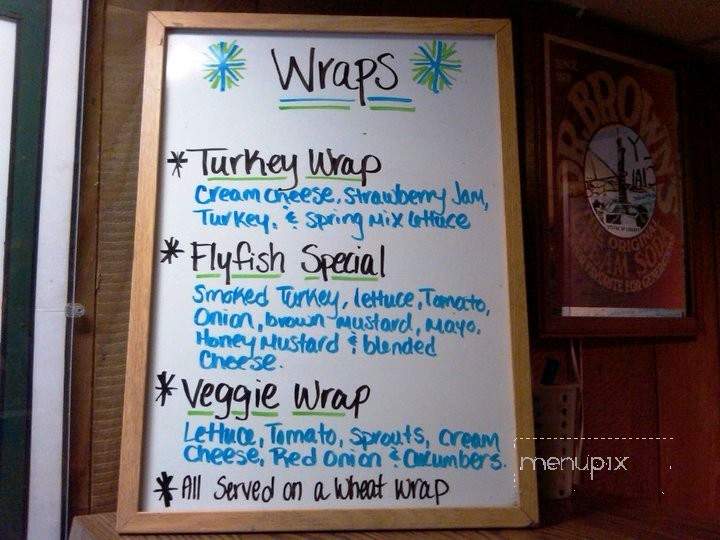 Wraps
* Turkey Wrap
Cream cheese, Strawberry Jam,
Turkey, & Spring Mix lettuce
* Flyfish Special
Smoked Turkey, lettuce, Tomato,
Onion, brown mustard, mayo,
Honey Mustard & blended
Cheese.
* Veggie Wrap
Lettuce, Tomato, Sprouts, Cream
Cheese, Red Onion & Cucumbers.
* All Served on a Wheat Wrap
DR. BROWN'S
ORIGINAL
CREAM SODA
menupix